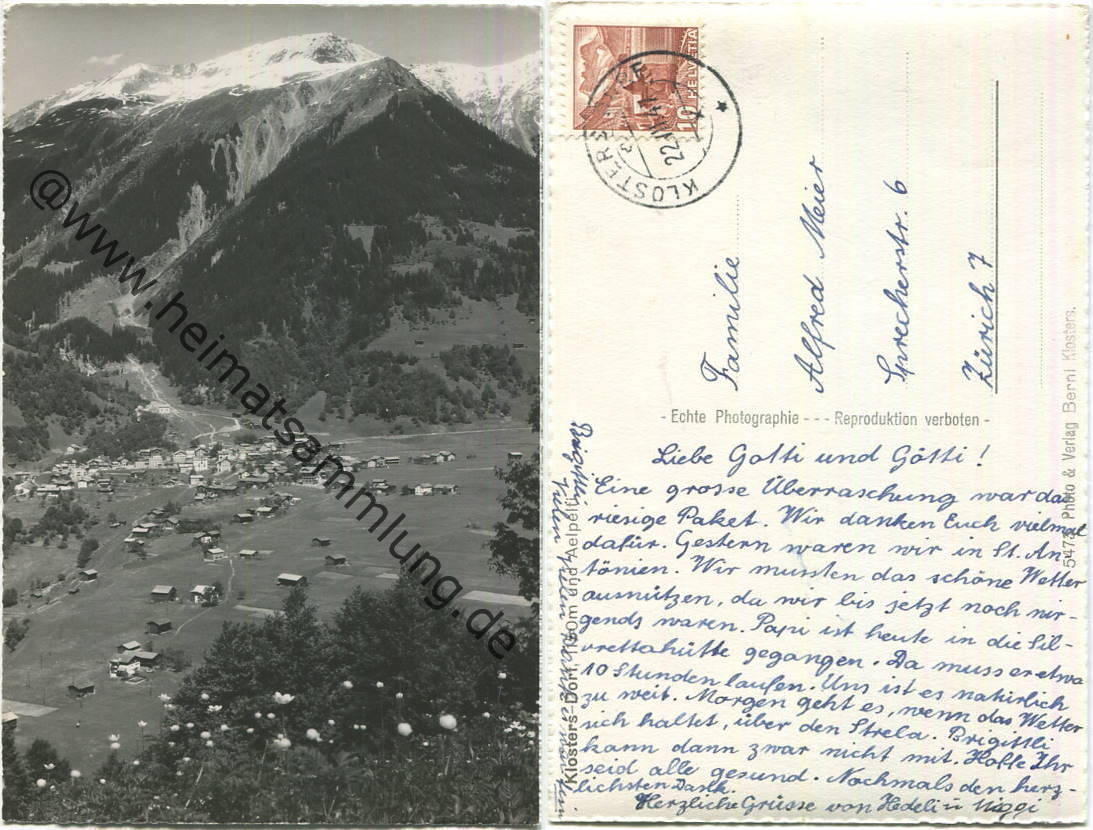 @www.heimatsammlung.de
10 HELVETIA
KLOSTERS
KLOSTERS
22.VII.47
Familie
Alfred Meier
Sprecherstr. 6
Zürich 7
- Echte Photographie - - - Reproduktion verboten -
5473 Photo & Verlag Berni Klosters.
Klosters-Dorf, und Aelpelti
Liebe Gotti und Götti!
Eine grosse Überraschung war das
riesige Paket. Wir danken Euch vielmal
dafür. Gestern waren wir in St. An-
tönien. Wir mussten das schöne Wetter
ausnützen, da wir bis jetzt noch nir-
gends waren. Papi ist heute in die Sil-
vrettahütte gegangen. Da muss er etwa
10 Stunden laufen. Uns ist es natürlich
zu weit. Morgen geht es, wenn das Wetter
sich haltet, über den Strela. Brigittli
kann dann zwar nicht mit. Hoffe Ihr
seid alle gesund. Nochmals den herz-
lichsten Dank.
Herzliche Grüsse von Hedeli u. Vieggi
Brigittli